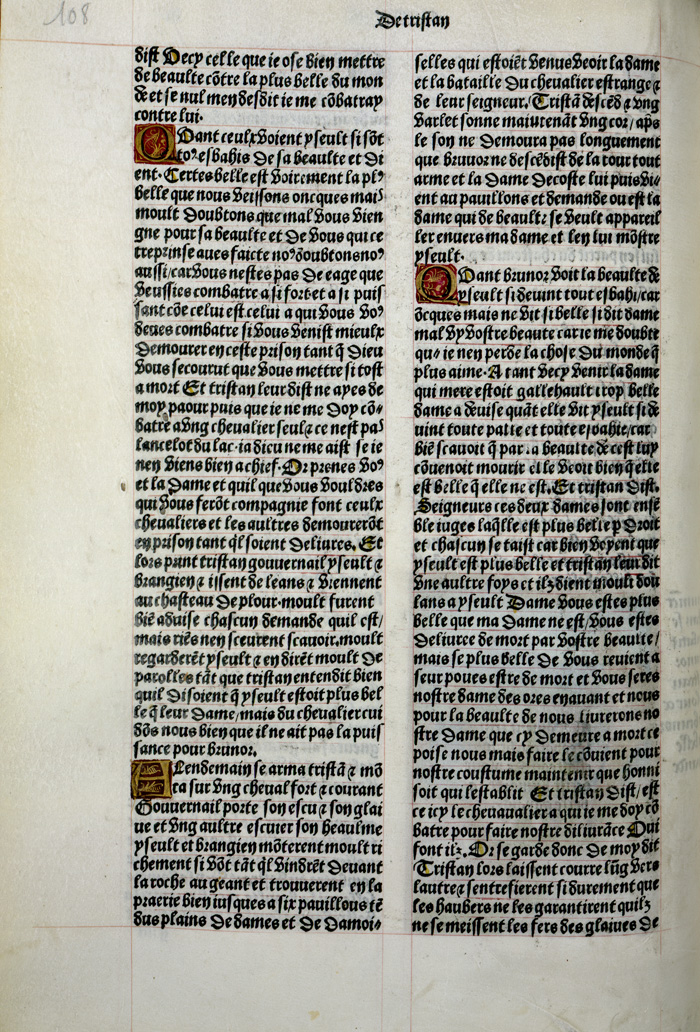 108
De tristan
dist Decy celle que ie ose bien mettre
de beaulte cõtre la plus belle du mon
de et se nul men desdit ie me cõbatray
contre lui.
Quant ceulx voient yseult si sõt
toꝰ esbahis de sa beaulte et di
ent. Certes belle est voirement la plꝰ
belle que nous veissons oncques mais
moult doubtons que mal vous vien
gne pour sa beaulte et de vous qui ce
treprinse aues faicte noꝰ doubtons noꝰ
aussi/car vous nestes pas de eage que
veussies combatre a si fort et a si puis
sant cõe celui est celui a qui vous voꝰ
deues combatre si vous venist mieulx
demourer en ceste prison tant q̃ dieu
vous secourut que vous mettre si tost
a mort Et tristan leur dist ne ayes de
moy paour puis que ie ne me doy cõ-
batre a vng cheualier seul ⁊ ce nest pas
lancelot du lac. ia dieu ne me aist se ie
nen viens bien a chief. Or prenes voꝰ
et la dame et quil que vous vouldres
qui vous ferõt compagnie font ceulx
cheualiers et les aultres demourerõt
en prison tant q̃l soient deliures. Et
lors print tristan gouuernail yseult ⁊
brangien ⁊ isent de leans ⁊ viennent
au chasteau de plour. moult furent
biẽ aduise chascun demande quil est/
mais riẽs nen sceurent scauoir. moult
regarderẽt yseult ⁊ en dirẽt moult de
parolles tãt que tristan entendit bien
quil disoient q̃ yseult estoit plus bel
le q̃ leur dame/mais du cheualier cui
dõs nous bien que il ne ait pas la puis
sance pour brunor.
Lendemain se arma tristã ⁊ mõ
ta sur vng cheual fort ⁊ courant
Gouuernail porte son escu ⁊ son glai
ue et vng aultre escuier son heaulme
yseult et brangien mõterent moult ri
chement si võt tãt q̃l vindrẽt deuant
la roche au geant et trouuerent en la
praerie bien iusques a six pauillons tẽ
dus plains de dames et de damoi-
selles qui estoiẽt venus veoir la dame
et la bataille du cheualier estrange ⁊
de leur seigneur. Tristã descẽd ⁊ vng
varlet sonne maintenãt vng cor/ apꝰs
le son ne demoura pas longuement
que bruuor ne descẽdist de la tour tout
arme et la dame decoste lui puis vi-
ent au pauillons et demande ou est la
dame qui de beaulte se veult appareil
ler enuers ma dame et len lui mõstre
yseult.
Quant brunor voit la beaulte de
yseult si deuint tout esbahi/car
õcques mais ne vit si belle si dit dame
mal vy vostre beaute car ie me doubte
que ie nen perde la chose du monde q̃
plus aime. A tant vecy venir la dame
qui mere estoit gallehault trop belle
dame a deuise quãt elle vit yseult si de
uint toute palle et toute esbahie/car
biẽ scauoit q̃ par la beaulte de cest luy
cõuenoit mourir et le veoit bien q̃ elle
est belle q̃ elle ne est. Et tristan dist.
Seigneurs ces deux dames sont ensẽ
ble iuges laq̃lle est plus belle p droit
et chascun se taist car bien voyent que
yseult est plus belle et tristan leur dit
vne aultre foys et ilz dient moult dou
lans a yseult Dame vous estes plus
belle que ma dame ne est/vous estes
deliuree de mort par vostre beaulte/
mais se plus belle de vous reuient a
seur poues estre de mort et vous seres
nostre dame des ores enauant et nous
pour la beaulte de nous liurerons no
stre dame que cy demeure a mort ce
poise nous mais faire le cõuient pour
nostre coustume maintenir que honni
soit qui lestablit Et tristan dist/est
ce icy le cheuaualier a qui ie me doy cõ
batre pour faire nostre deliurãce Oui
font ilz. Or se garde donc de moy dit
Tristan lors laissent courre lũg vers
lautre ⁊ sentrefierent si durement que
les haubers ne les garantirent quilz
ne se meissent les fers des glaiues de